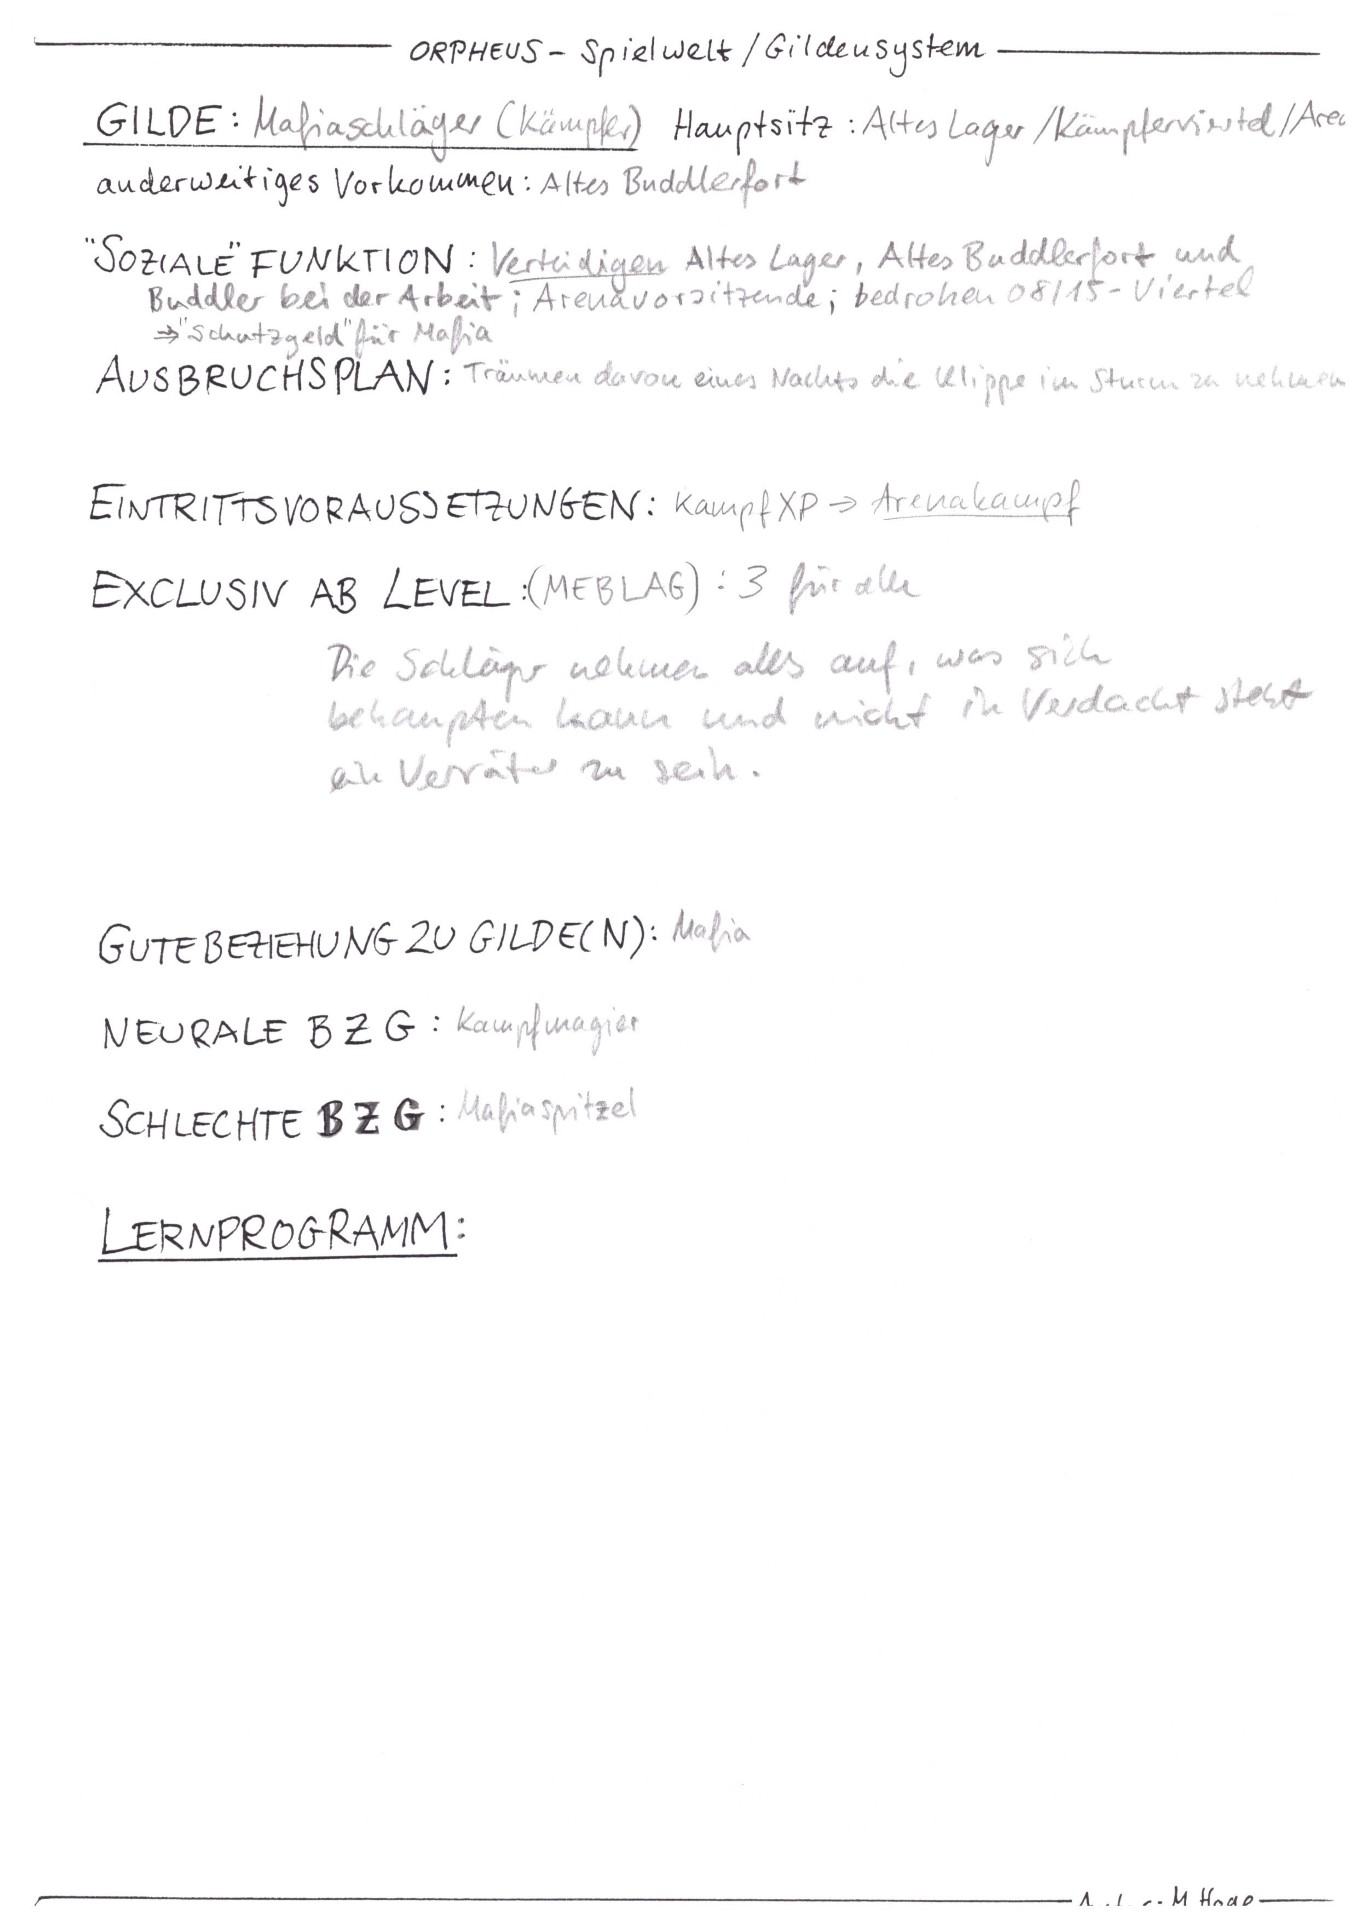 ORPHEUS - Spielwelt / Gildensystem
GILDE: Mafiaschläger (Kämpfer) Hauptsitz: Altes Lager / Kämpferviertel / Aren
anderweitiges Vorkommen: Altes Buddlerfort
"SOZIALE" FUNKTION: Verteidigen Altes Lager, Altes Buddlerfort und
Buddler bei der Arbeit; Arenavorsitzende; bedrohen 08/15-Viertel
⇒ "Schutzgeld" für Mafia
AUSBRUCHSPLAN: Träumen davon eines Nachts die Klippe im Sturm zu nehmen
EINTRITTSVORAUSSETZUNGEN: Kampf XP → Arenakampf
EXCLUSIV AB LEVEL: (MEBLAG): 3 für alle
Die Schläger nehmen alles auf, was sich
behaupten kann und nicht in Verdacht steht
ein Verräter zu sein.
GUTE BEZIEHUNG ZU GILDE(N): Mafia
NEURALE BZG: Kampfmagier
SCHLECHTE BZG: Mafiaspitzel
LERNPROGRAMM: